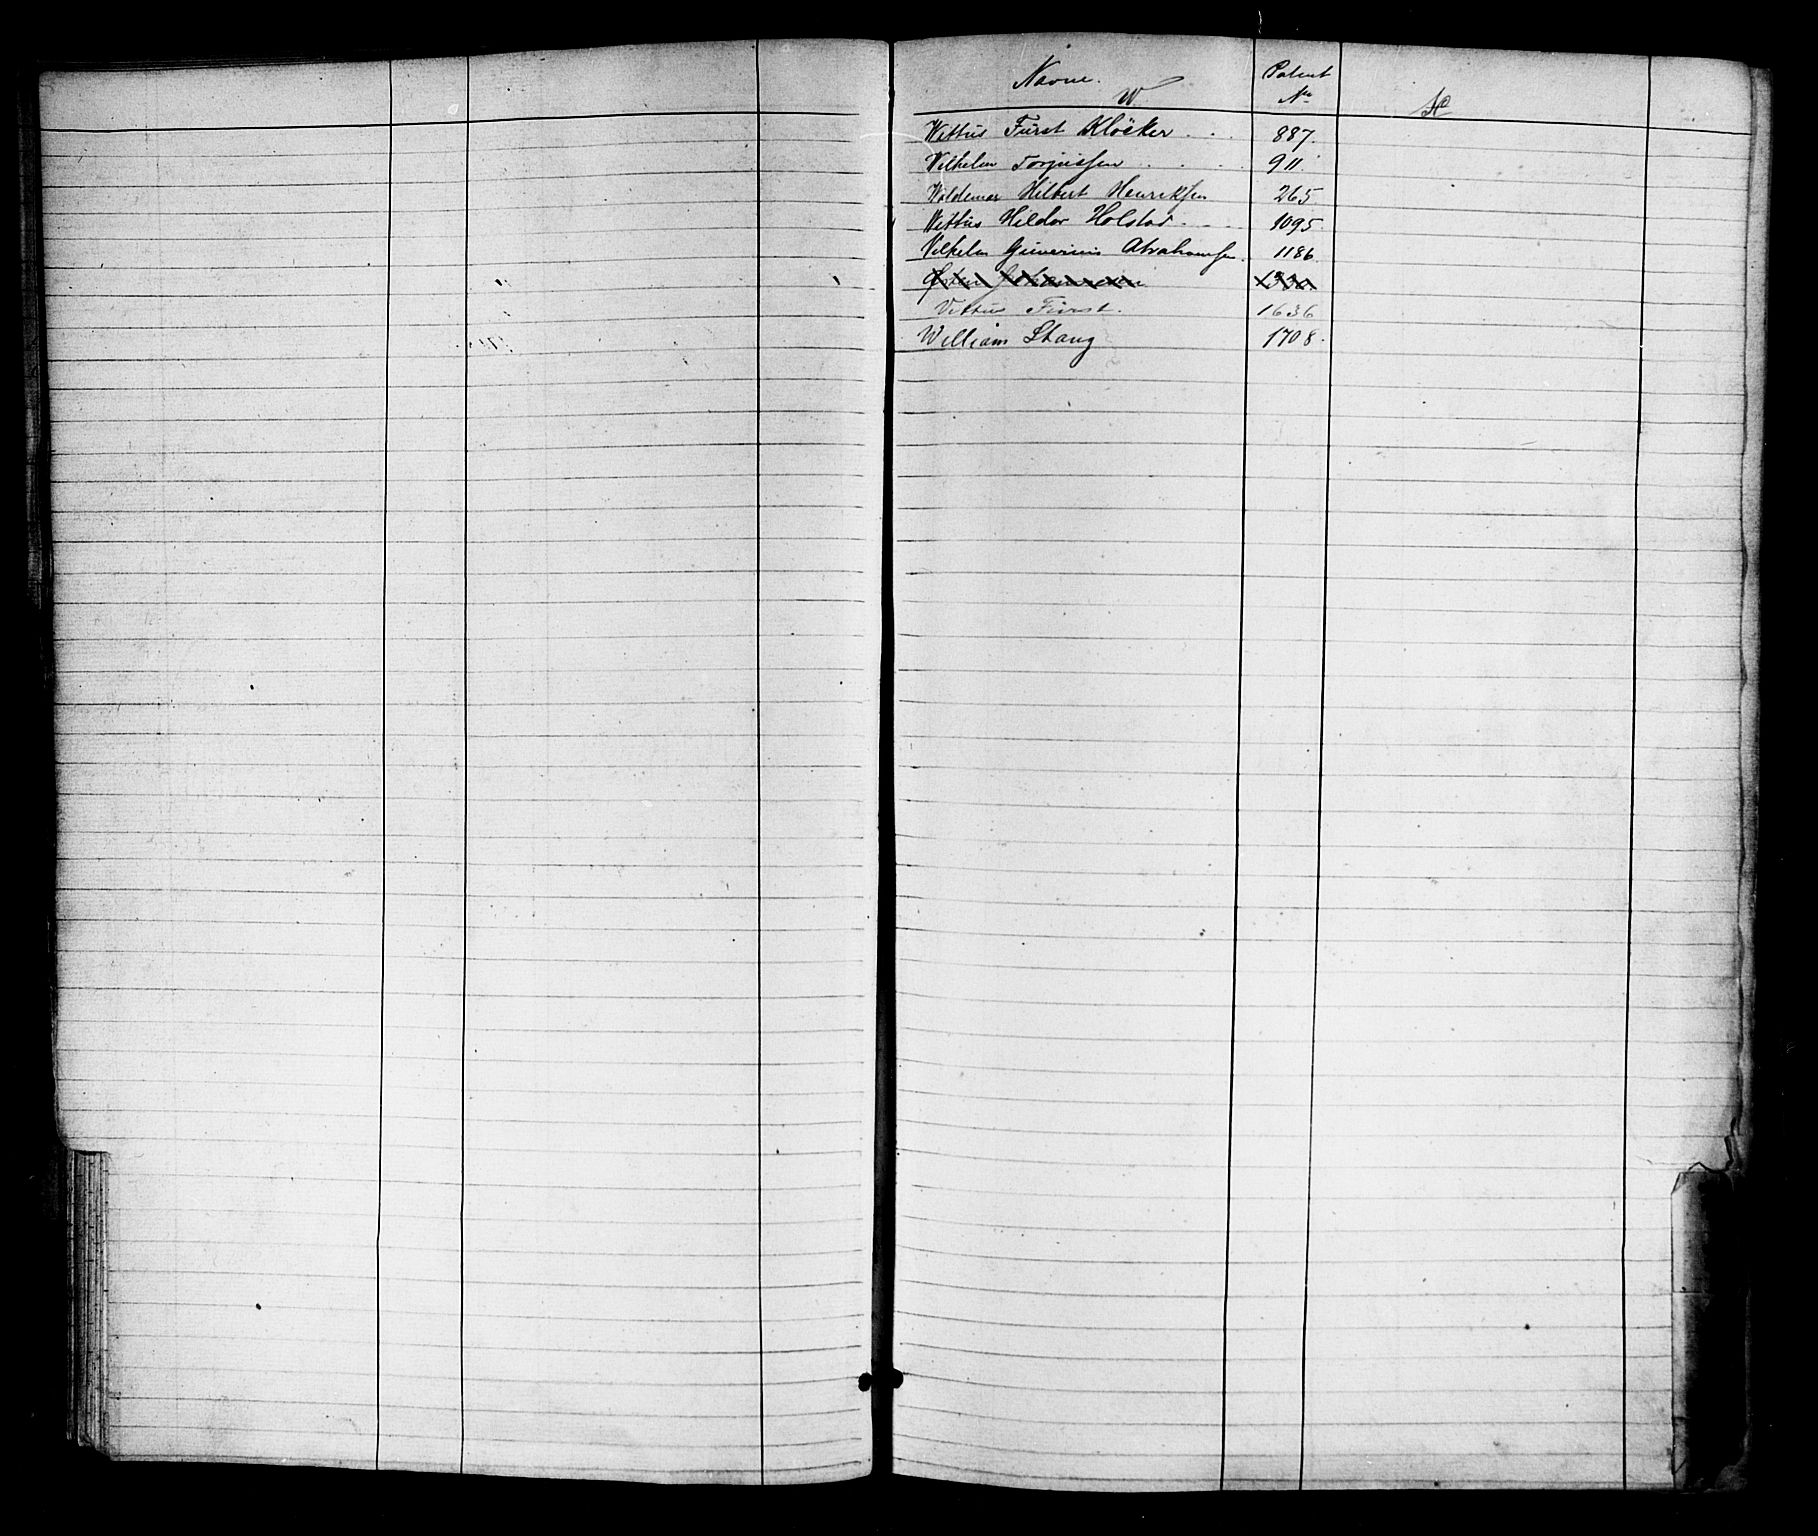 Navne.
Patent
No
W
Wittus Fürst Klöcker . . . 887.
Vilhelm Torjussen . . . . 911.
Waldemar Helbert Henriksen 265
Wittus Hildor Holstad . . . 1095
Vilhelm Guverius Abrahamsen. 1186
Østen Johannesen
Vittus Fürst. 1636
William Stang 1708.